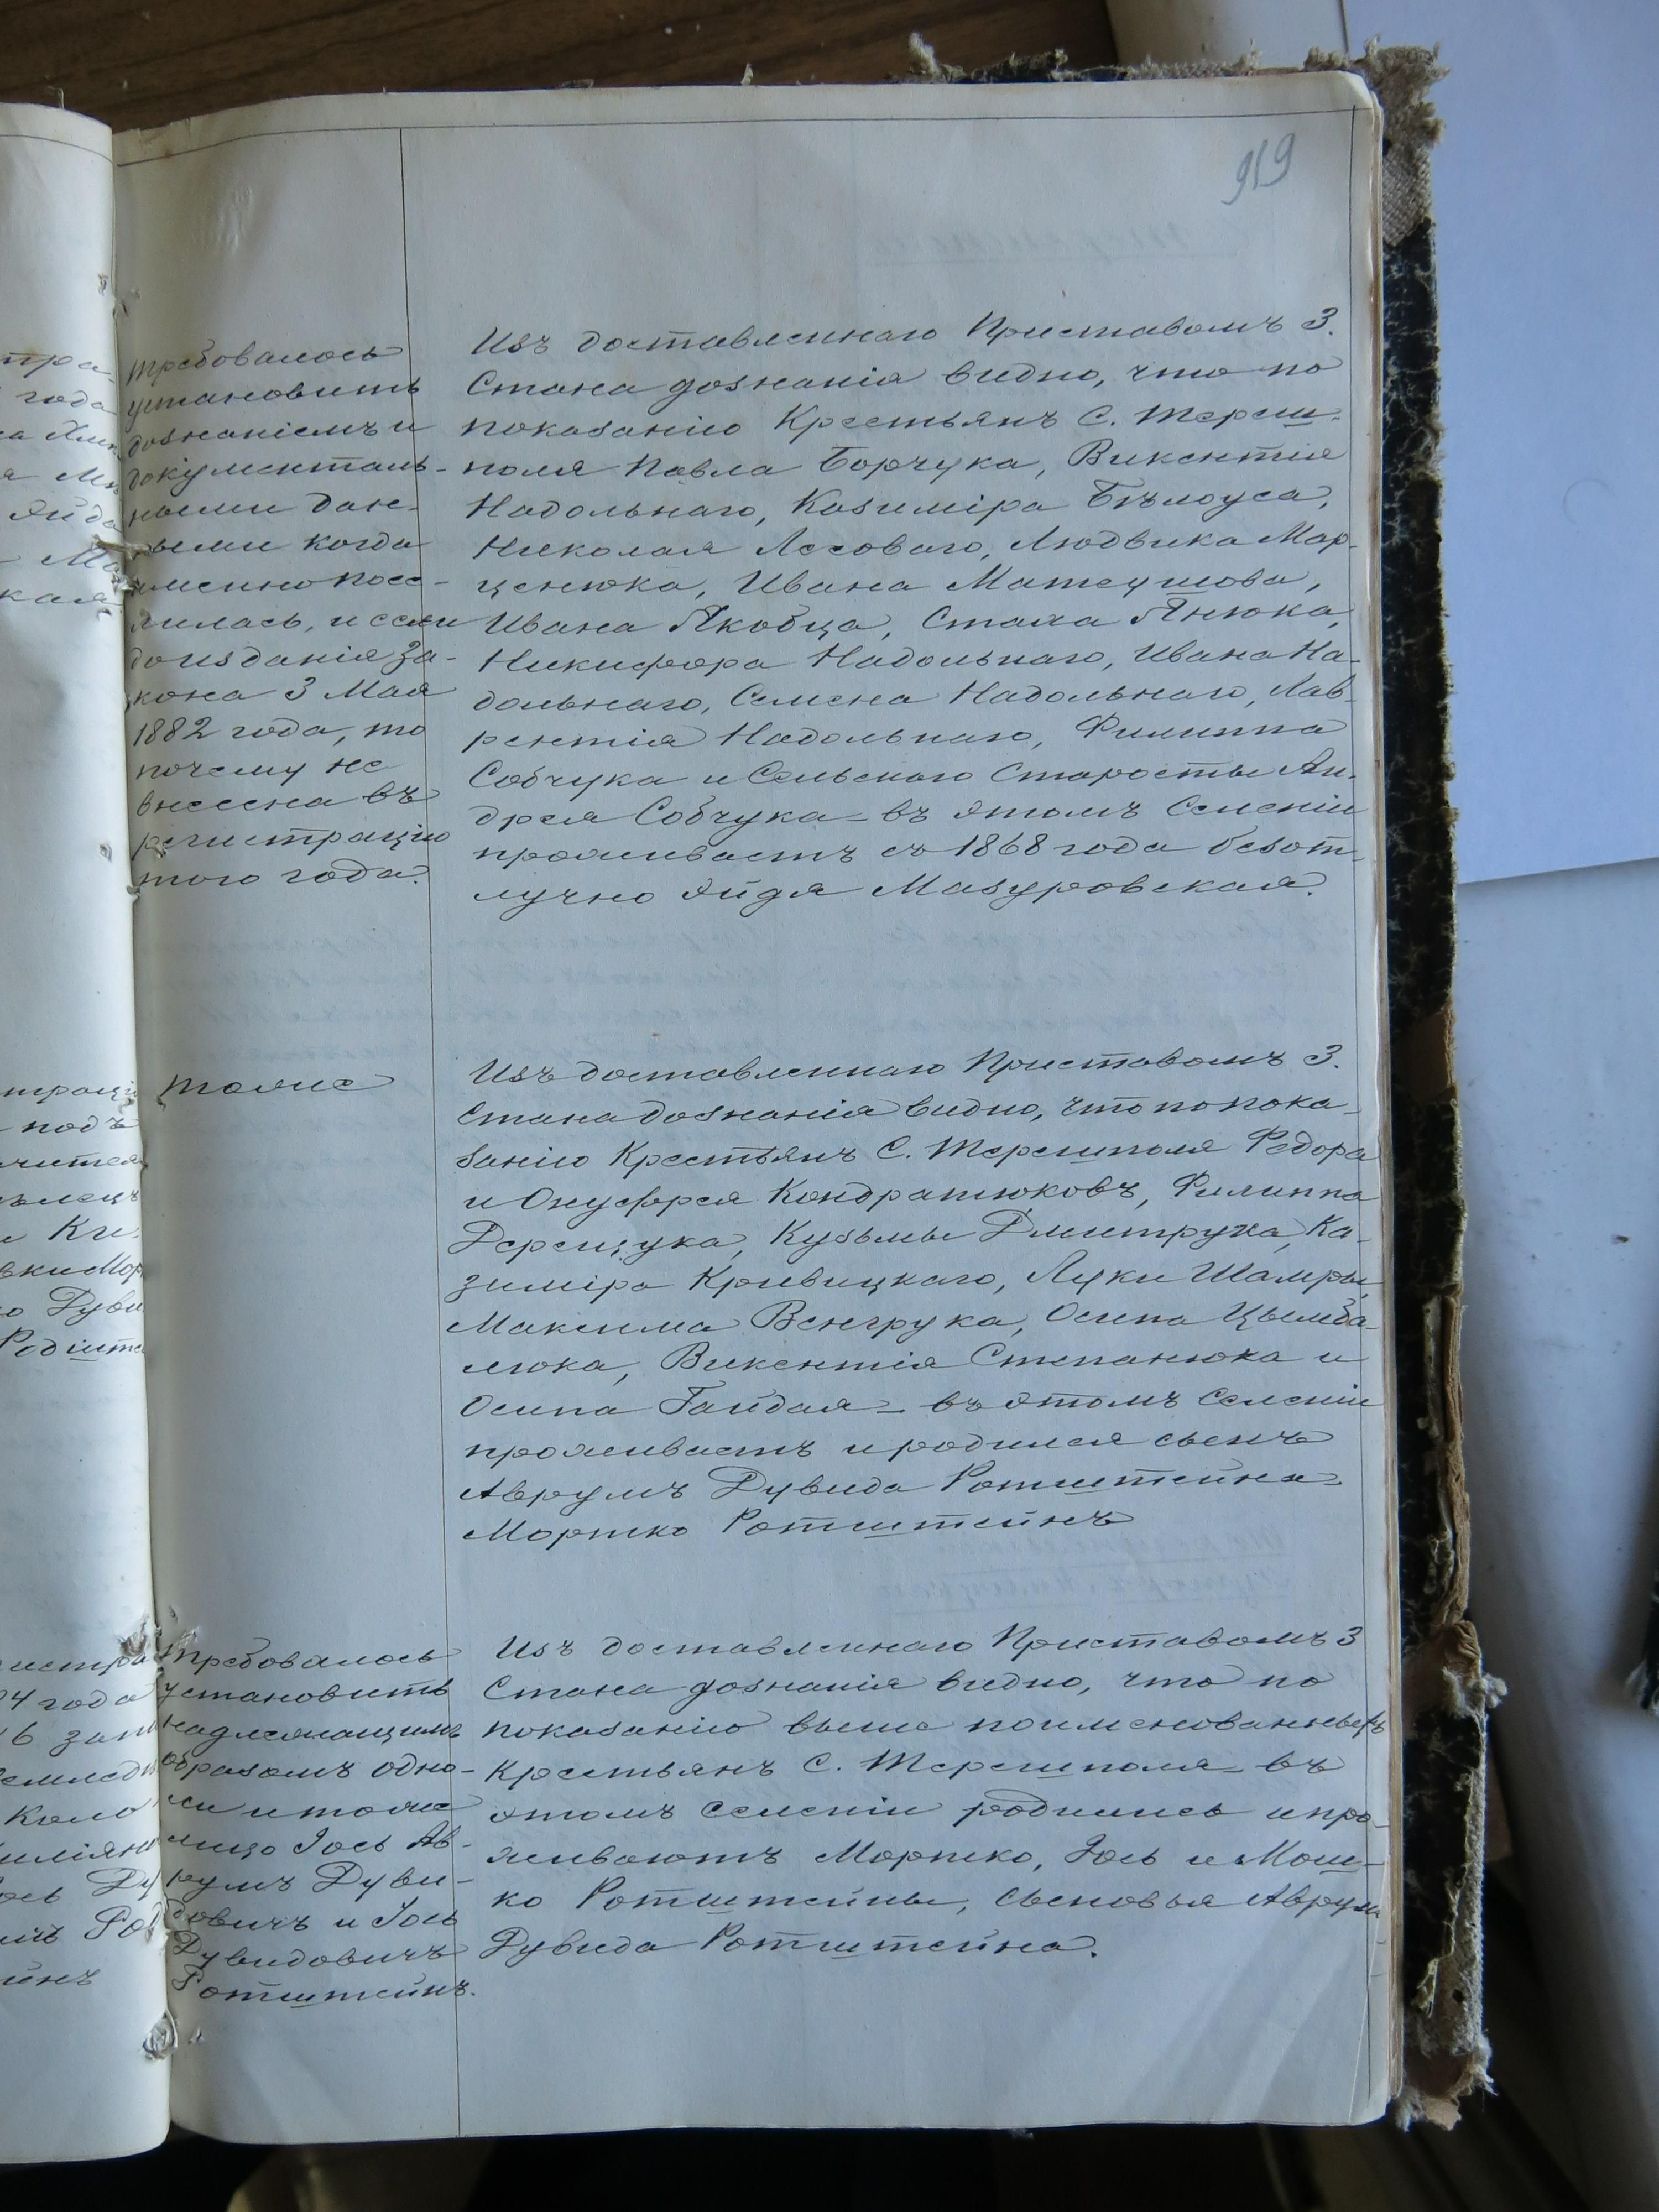 919
Требовалось
установить
дознаніемъ и
документаль-
ными дан-
ными когда
именно посе-
лилась, и если
до изданія За-
кона 3 Мая
1882 года, то
почему не
внесена въ
регистрацію
того года.
Изъ доставленнаго Приставомъ 3.
Стана дознанія видно, что по
показанію Крестьянъ С. Тереш-
поля Павла Борчука, Викентія
Надольнаго, Казиміра Бѣлоуса,
Николая Лесоваго, Людвика Мар-
ценюка, Ивана Матеушова,
Ивана Якобца, Стаха Янюка,
Никифора Надольнаго, Ивана На-
дольнаго, Семена Надольнаго, Лав-
рентія Надольнаго, Филиппа
Собчука и Сельскаго Старосты Ан-
дрея Собчука – въ этомъ Селеніи
проживаетъ съ 1868 года безот-
лучно Эйдя Мазуровская.
тоже
Изъ доставленнаго Приставомъ 3.
Стана дознанія видно, что по пока-
занію Крестьянъ С. Терешполя Федора
и Онуфрея Кондратюковъ, Филиппа
Деренцука, Кузьмы Дмитрука, Ка-
зиміра Кривицкаго, Луки Шамры,
Максима Венгрука, Осипа Цымба-
люка, Викентія Степанюка и
Осипа Гайдая – въ этомъ Селеніи
проживаетъ и родился сынъ
Аврумъ Дувида Ротштейна –
Мортко Ротштейнъ
Требовалось
установить
надлежащимъ
образомъ одно-
ли и тоже
лицо Іось Ав-
румъ Дуви-
довичъ и Іось
Дувидовичъ
Ротштейнъ.
Изъ доставленнаго Приставомъ 3
Стана дознанія видно, что по
показанію выше поименованныхъ
Крестьянъ С. Терешполя – въ
этомъ Селеніи родились и про-
живаютъ Мортко, Іось и Мош-
ко Ротштейны, сыновья Аврума
Дувида Ротштейна.